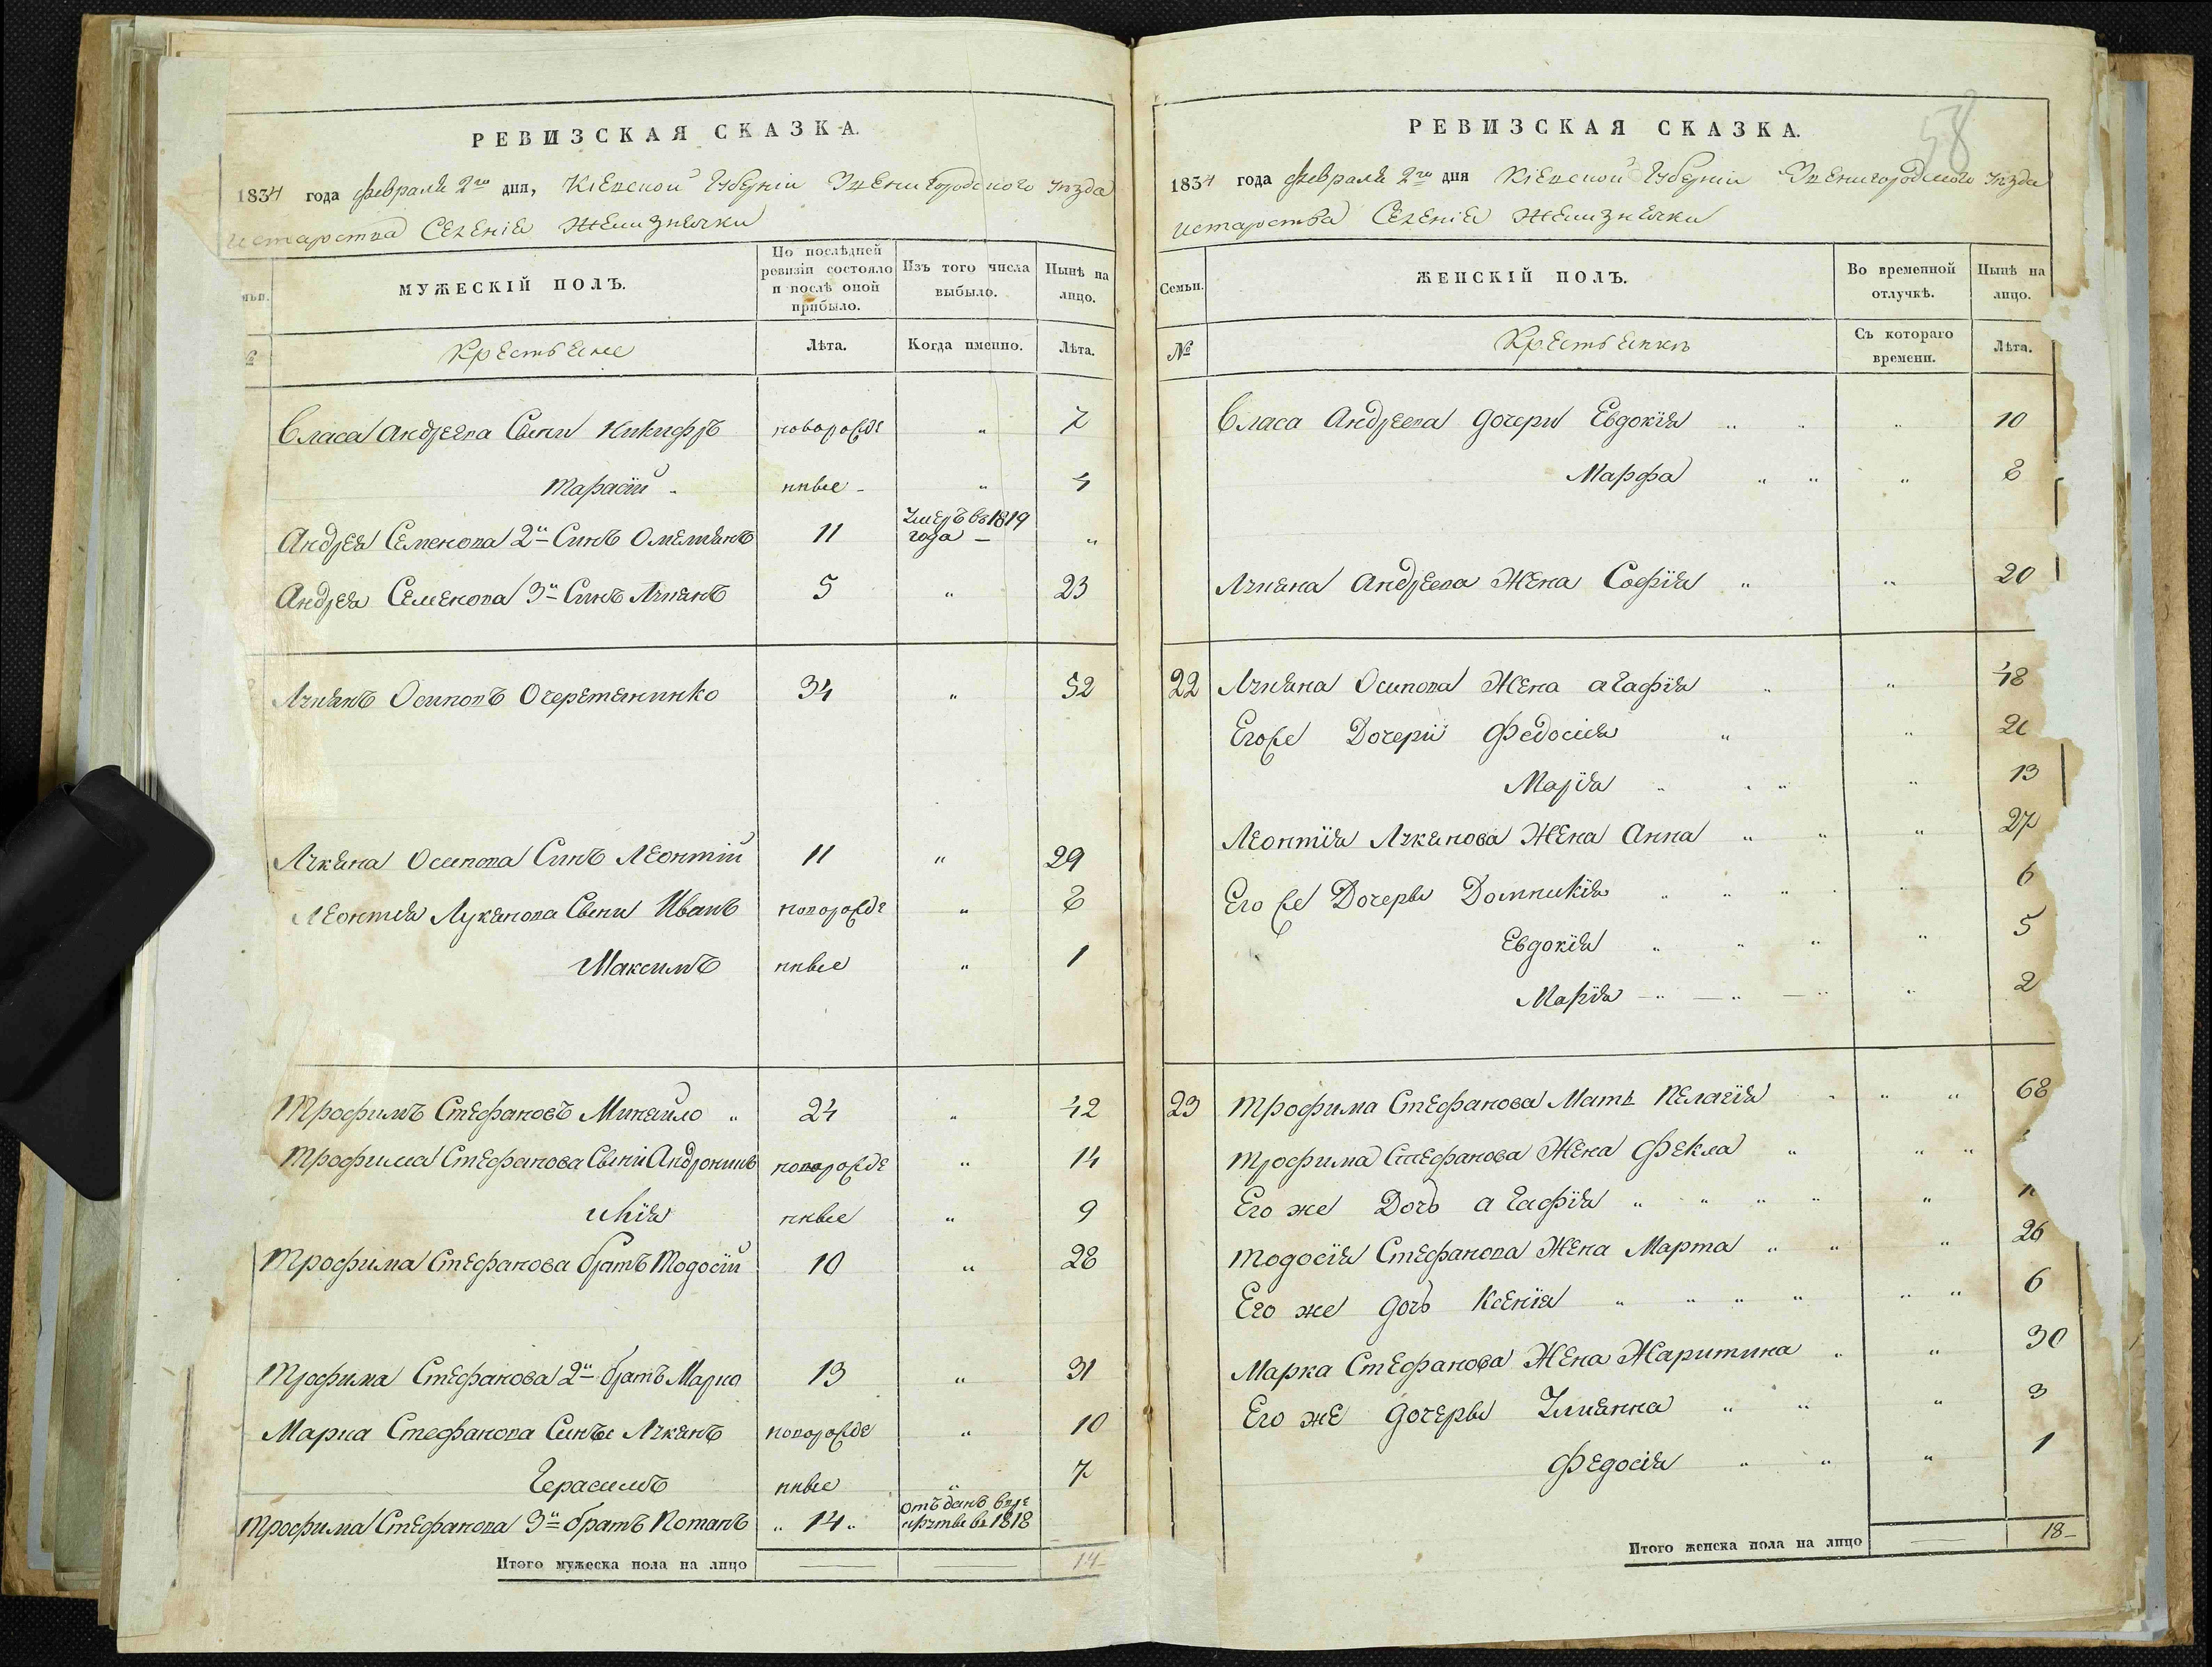 58
РЕВИЗСКАЯ СКАЗКА.
1834 года февраля 2го дня, Кіевской Губерніи Звенигородского уезда
Старства Селенія
МУЖЕСКІЙ ПОЛЪ.
По послѣдней ревизіи состояло и послѣ оной прибыло.
Изъ того числа выбыло.
Нынѣ на лицо.
Крестьяне
Лѣта.
Когда именно.
Лѣта.
Власа Андреева Сыни Никифръ новорожде " 7
Тарасій нные " 4
Андрея Семенова 2й Синъ Омелянъ 11 Умеръ въ 1819 года "
Андрея Семенова 3й Синъ Лукянъ 5 " 23
Лукянъ Осиповъ 34 " 52
Лукяна Осипова Синъ Леонтій 11 " 29
Леонтія Лукянова Сыни Иванъ новорожде " 8
Максимъ нные " 1
Трофимъ Стефановъ Михайло " 24 " 42
Трофима Стефанова Сыни новорожде " 14
Илія нные " 9
Трофима Стефанова братъ Тодосій 10 " 28
Трофима Стефанова 2й братъ Марко 13 " 31
Марка Стефанова Сины Лукянъ новорожде " 10
Герасимъ нные " 7
Трофима Стефанова 3й братъ Романъ " 14 " отъданъ въ 1818
Итого мужеска пола на лицо 14
РЕВИЗСКАЯ СКАЗКА.
1834 года февраля 2го дня Кіевской Губерніи Звенигородского уезда
Старства Селенія
Семьи.
ЖЕНСКІЙ ПОЛЪ.
Во временной отлучкѣ.
Нынѣ на лицо.
№
Крестьянки
Съ котораго времени.
Лѣта.
Власа Андреева дочери Евдокія " 10
Марфа " 8
Лукяна Андреева Жена Софія " 20
22 Лукяна Осипова Жена Агафія " 48
Егоже Дочери Федосія "
Марія " 13
Леонтія Лукянова Жена Анна " 27
Его же Дочеры Домникія " 6
Евдокія " 5
Марія " 2
23 Трофима Стефанова Мать Пелагія " 68
Трофима Стефанова Жена Фекла "
Его же Дочь Агафія "
Тодосія Стефанова Жена Марта " 26
Его же дочь Ксенія " 6
Марка Стефанова Жена Харитина " 30
Его же дочеры Улианна " 3
Федосія " 1
Итого женска пола на лицо 18